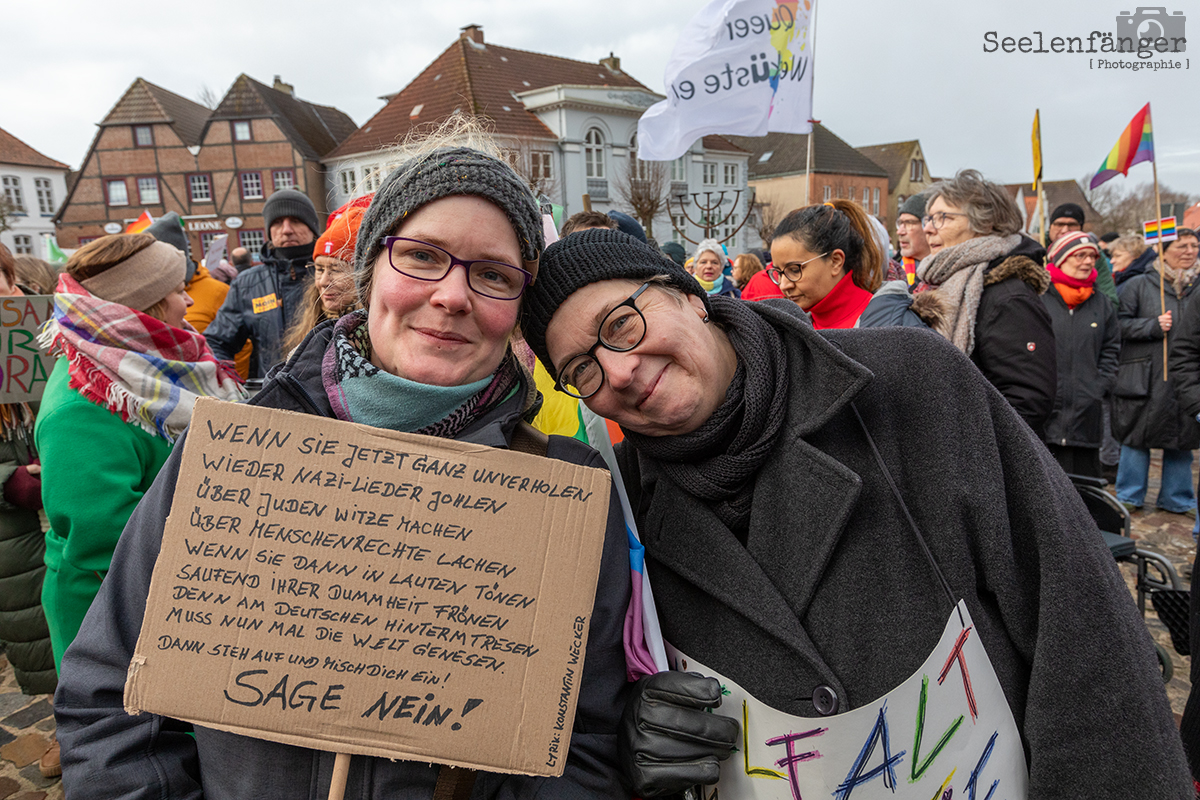 Seelenfänger
[ Photographie ]
Queer
Weküste e
LEONE
WENN SIE JETZT GANZ UNVERHOLEN
WIEDER NAZI-LIEDER JOHLEN
ÜBER JUDEN WITZE MACHEN
ÜBER MENSCHENRECHTE LACHEN
WENN SIE DANN IN LAUTEN TÖNEN
SAUFEND IHRER DUMMHEIT FRÖNEN
DENN AM DEUTSCHEN HINTERMTRESEN
MUSS NUN MAL DIE WELT GENESEN.
DANN STEH AUF UND MISCH DICH EIN!
SAGE NEIN!
LYRIK: KONSTANTIN WECKER